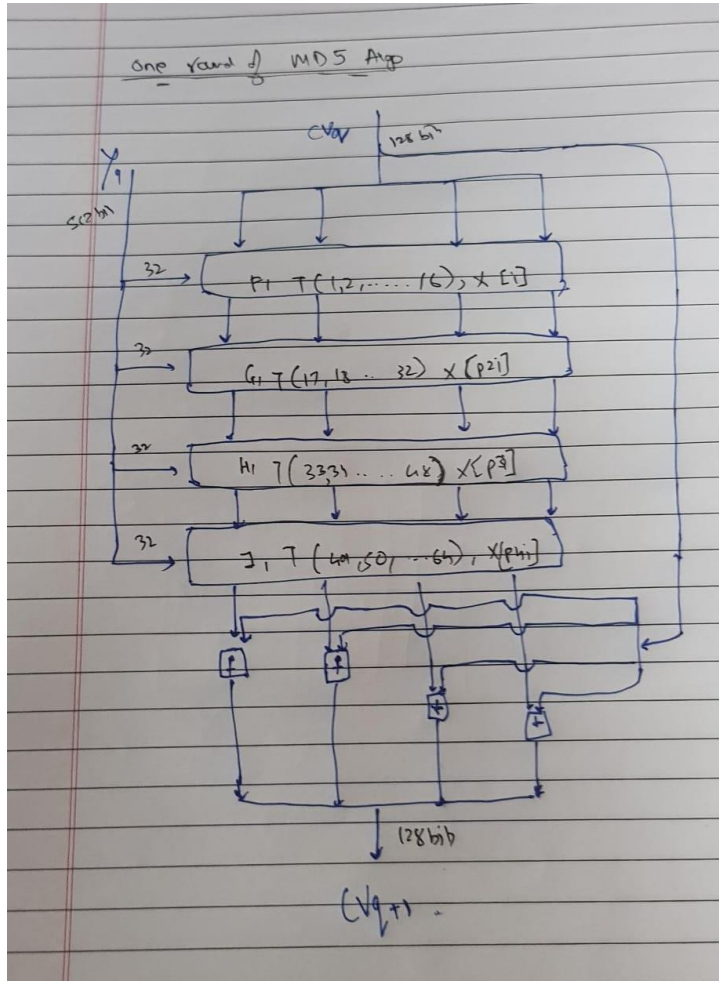 One round of MD5 Algo
CVq
128 bit
Yq
512 bit
32
F, T(1,2,.....16), X[i]
32
G, T(17,18.. 32) X[p2i]
32
H, T(33,34.....48) X[p3i]
32
I, T(49,50,...64), X[p4i]
+
+
+
+
128 bit
CVq+1.